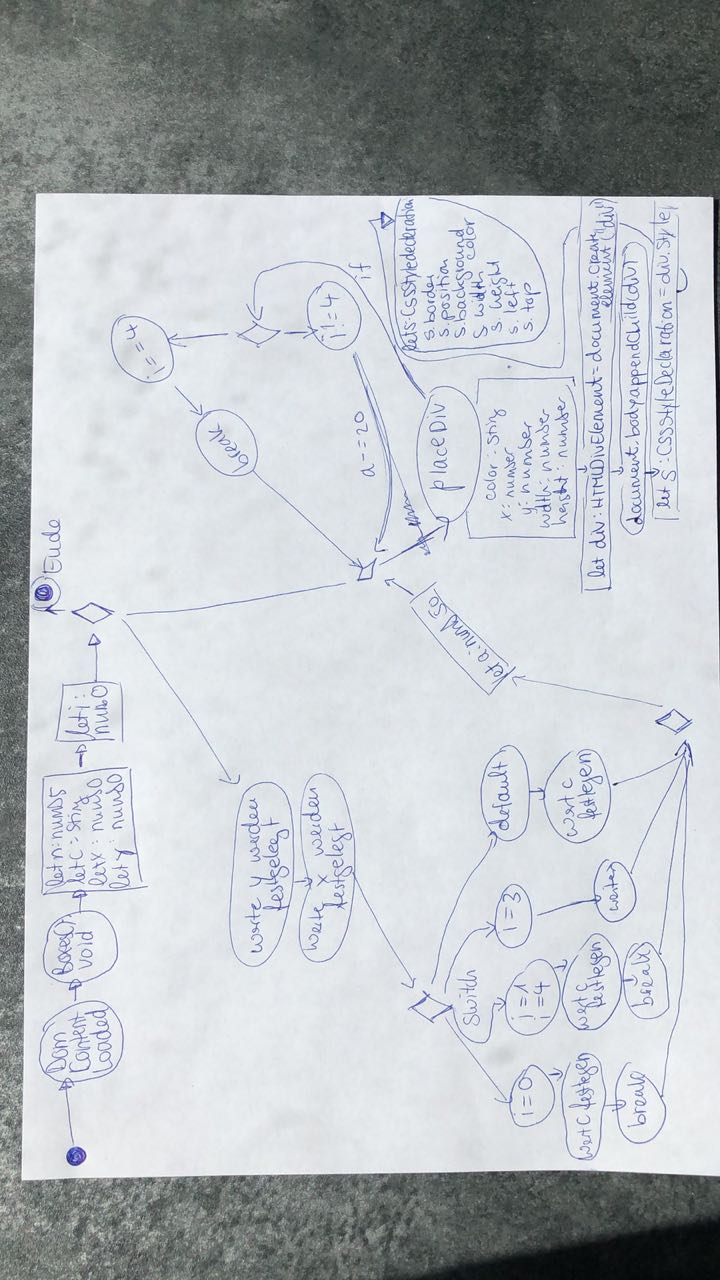 Dom
Content
Loaded
Boxes()
void
let n: num=5
let c: Sting
let x: num=0
let y: num=0
let i:
num=0
Ende
werte y werden
festgelegt
werte x werden
festgelegt
Switch
i=0
wert C festlegen
break
i=1
i=4
wert C
festlegen
break
i=3
weiter
default
wert C
festlegen
let a: num=50
a -= 20
i==4
break
i!=4
if
placeDiv
color: Sting
x: number
y: number
width: number
height: number
let s: CssStyledecleration
s. border
s. position
s. background
color
s. width
s. height
s. left
s. top
let div: HTMLDivElement = document. create
element ("div")
document. body. appendChild(div)
let s : CSSStyleDeclaration = div.style